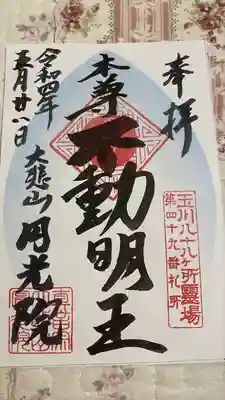 奉拝
玉川八十八ヶ所霊場
第四十九番札所
本尊
不動明王
令和四年
五月廿八日
大悲山円光院